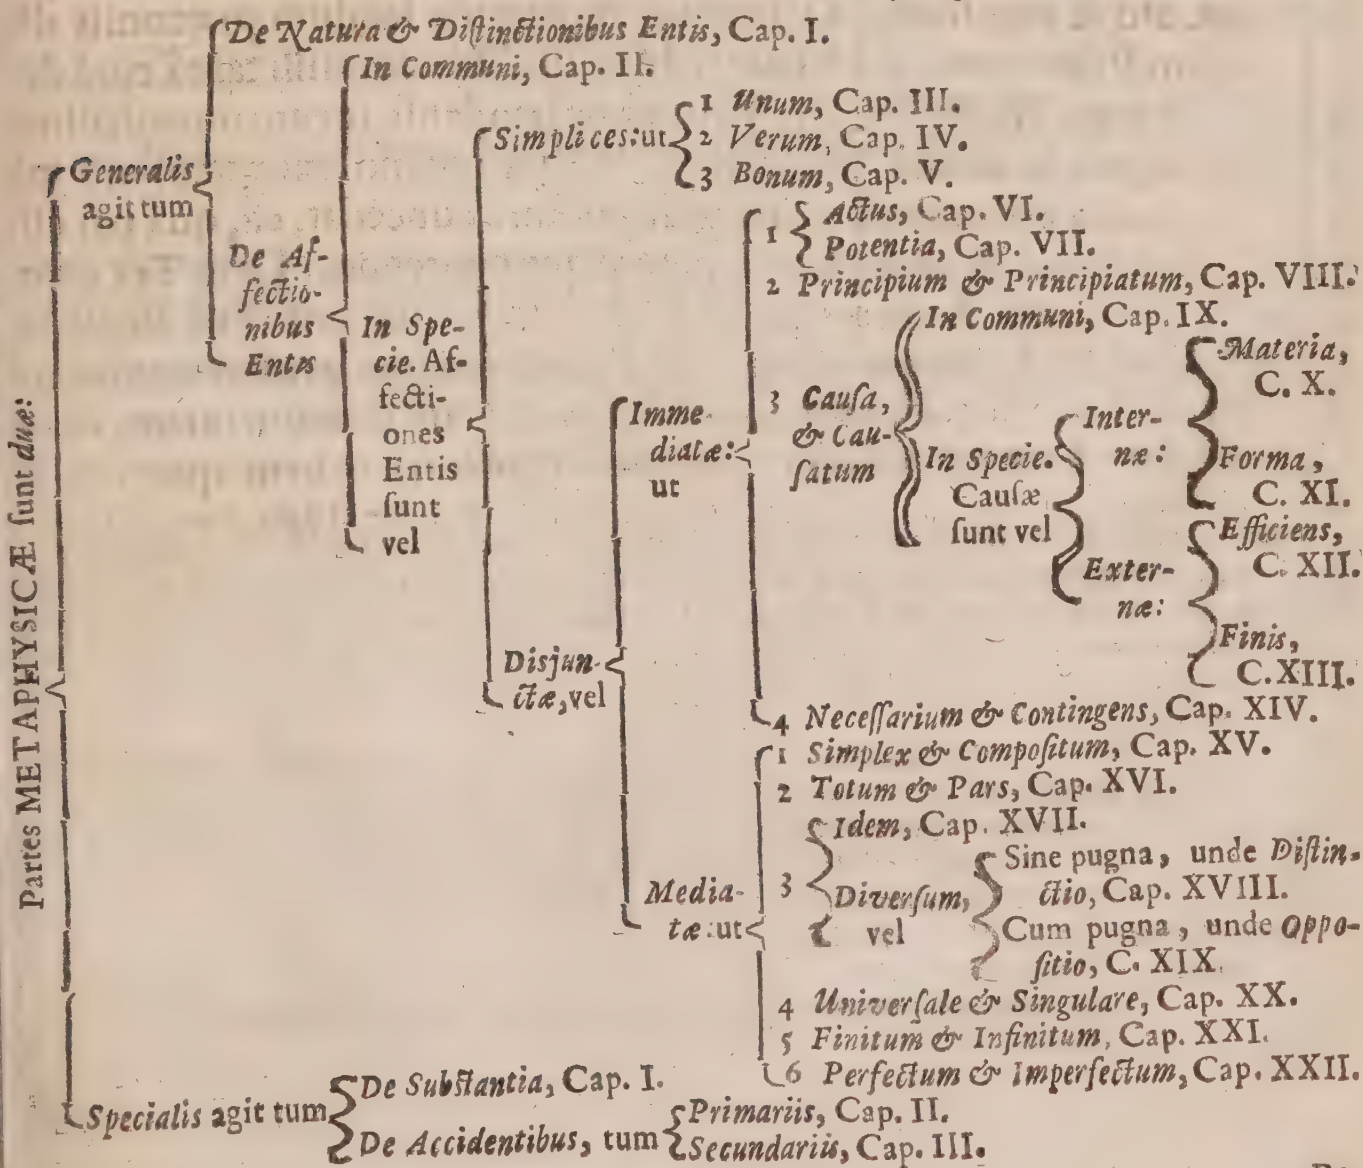 Partes METAPHYSICÆ ſunt duæ:
Generalis
agit tum
De Natura & Diſtinctionibus Entis, Cap. I.
De Af-
fectio-
nibus
Entis
In Communi, Cap. II.
In Spe-
cie. Af-
fecti-
ones
Entis
ſunt
vel
Simplices: ut
1 Unum, Cap. III.
2 Verum, Cap. IV.
3 Bonum, Cap. V.
Disjun-
ctæ, vel
Imme-
diatæ:
ut
1 Actus, Cap. VI.
Potentia, Cap. VII.
2 Principium & Principiatum, Cap. VIII.
3 Cauſa,
& Cau-
ſatum
In Communi, Cap. IX.
In Specie.
Cauſæ
ſunt vel
Inter-
næ:
Materia,
C. X.
Forma,
C. XI.
Exter-
næ:
Efficiens,
C. XII.
Finis,
C. XIII.
4 Neceſſarium & Contingens, Cap. XIV.
Media-
tæ: ut
1 Simplex & Compoſitum, Cap. XV.
2 Totum & Pars, Cap. XVI.
3 Idem, Cap. XVII.
Diverſum,
vel
Sine pugna, unde Diſtin-
ctio, Cap. XVIII.
Cum pugna, unde Oppo-
ſitio, C. XIX.
4 Univerſale & Singulare, Cap. XX.
5 Finitum & Infinitum, Cap. XXI.
6 Perfectum & Imperfectum, Cap. XXII.
Specialis agit tum
De Subſtantia, Cap. I.
De Accidentibus, tum
Primariis, Cap. II.
Secundariis, Cap. III.